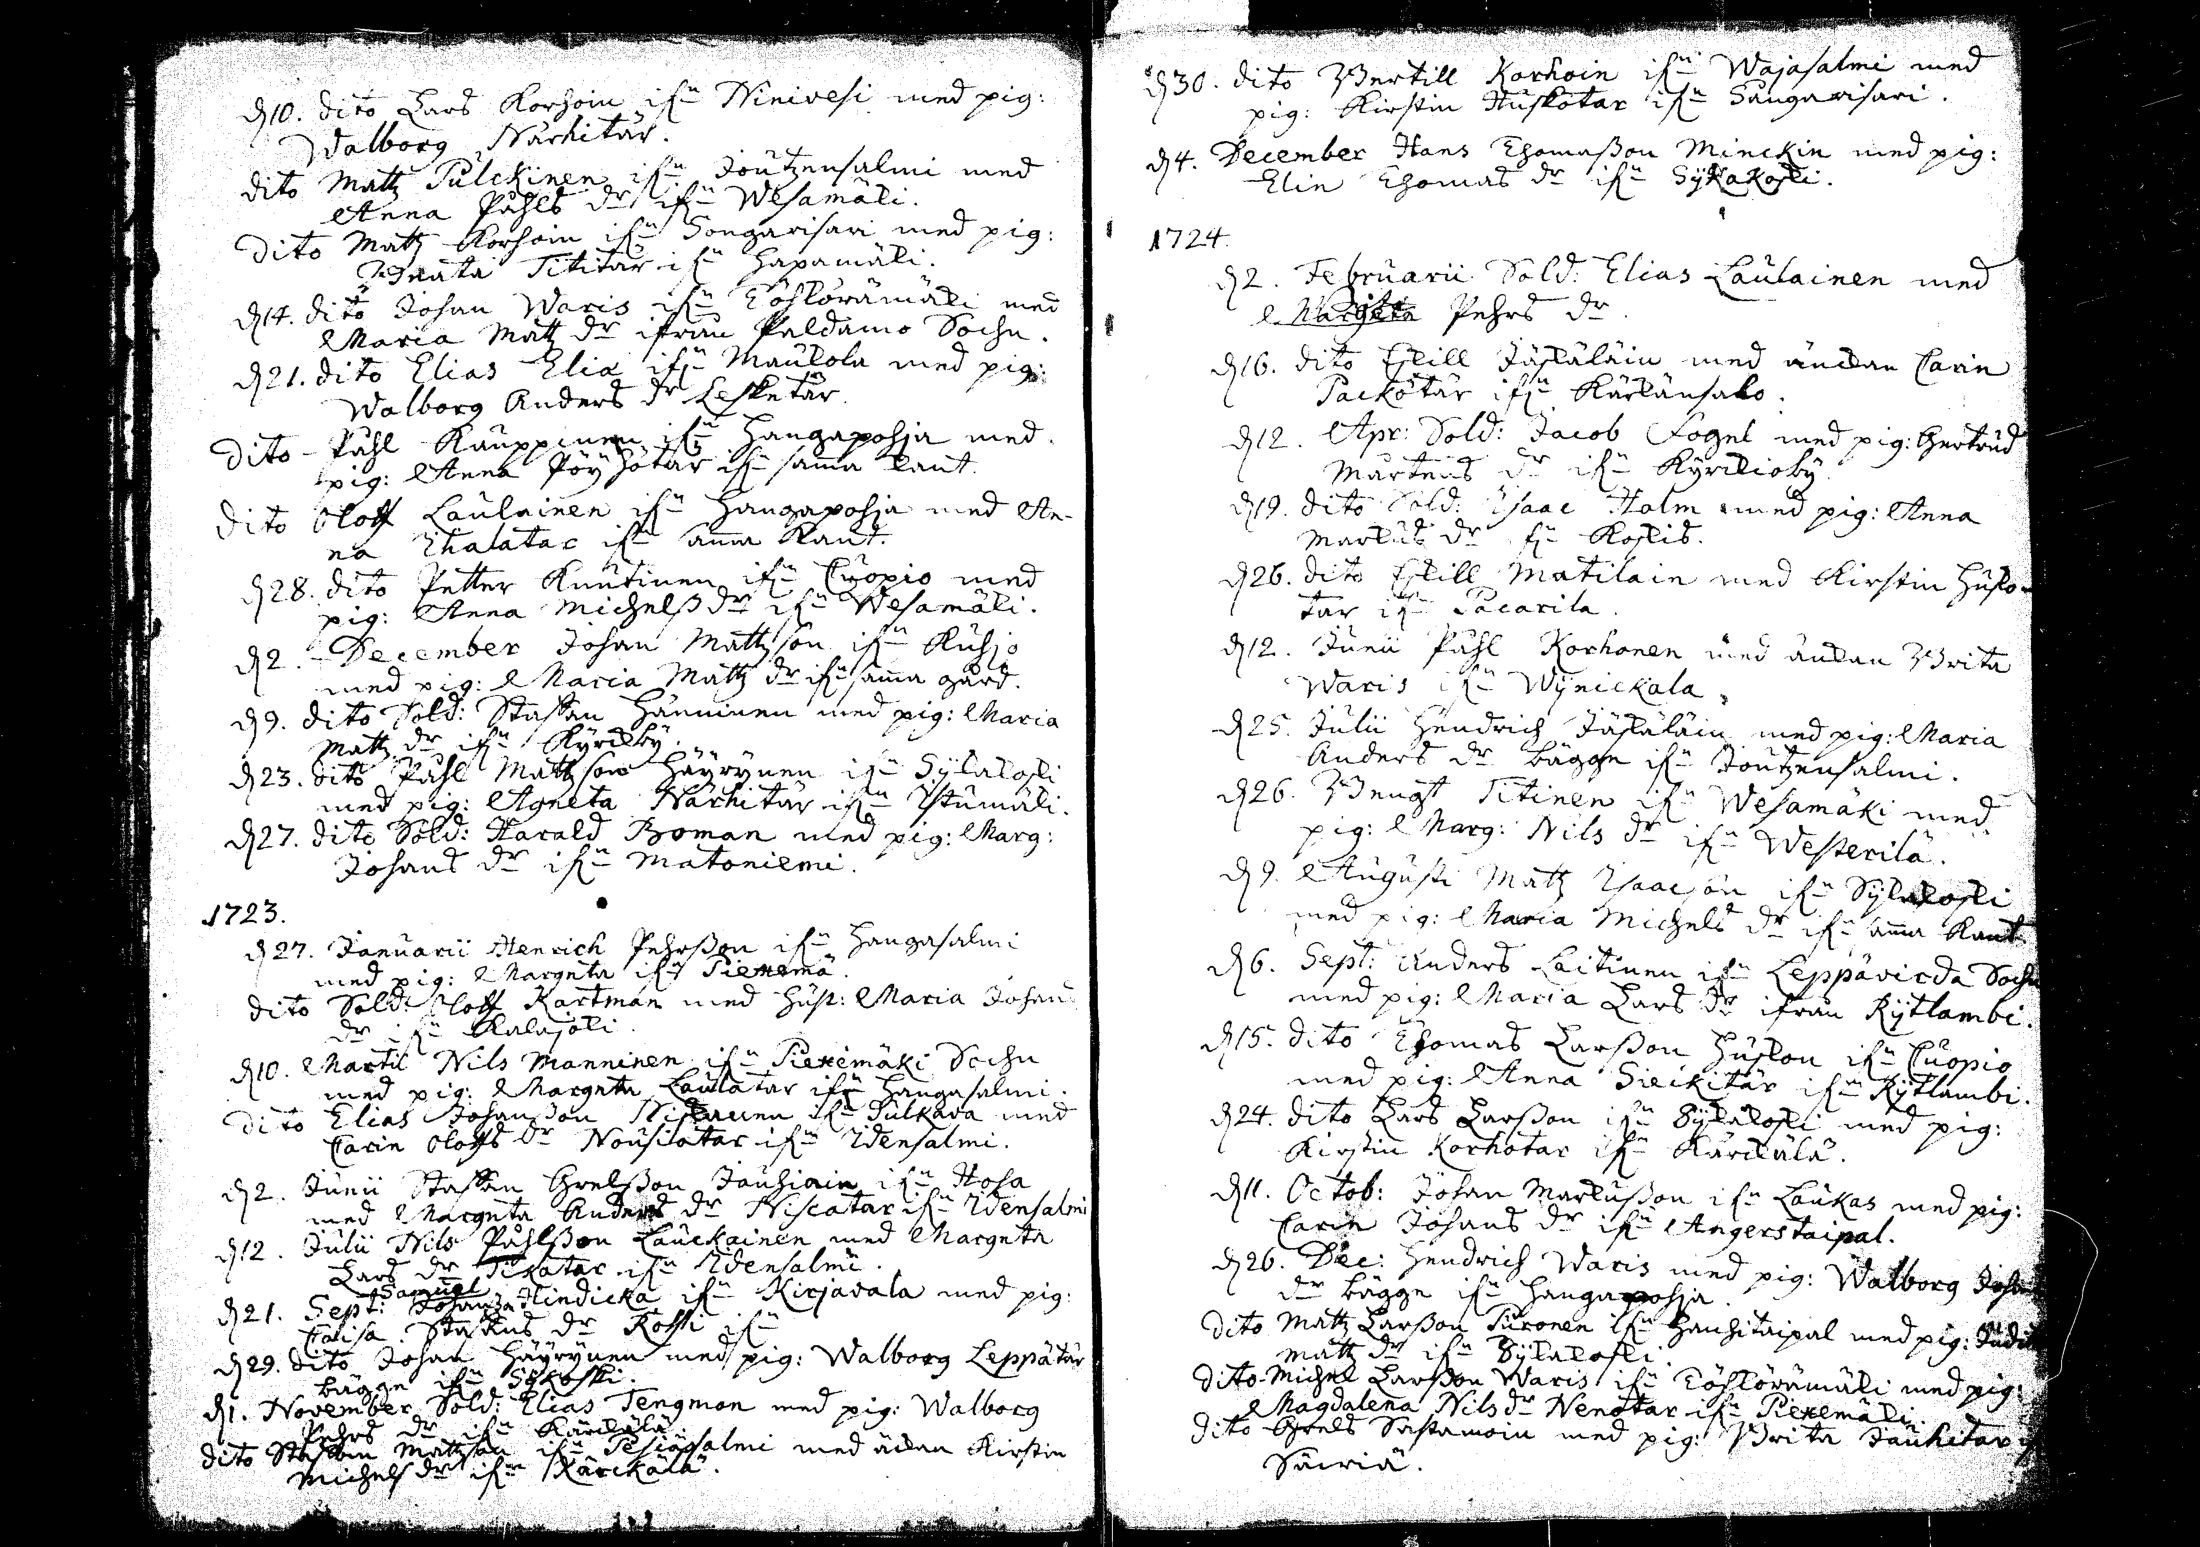 d 10. dito Lars Korhoin ifrn Ninivesi med pig:
Walborg Närhitär.
dito Matz Pulckinen ifrn Joutzensalmi med
Anna Påhls dr ifrn Wesamäki.
Dito Matz Korhoin ifrn Songarisari med pig:
Beata Tititär ifrn Hapamäki.
d 14. dito Johan Waris ifrn Töhlörämäki med
Maria Matz dr ifrån Paldamo Sochn.
d 21. dito Elias Elia ifrn Maukola med pig:
Walborg Anders dr Lesketär.
Dito Påhl Kauppinen ifrn Hangapohja med
pig: Anna Pöyhötar ifrn samma kant.
dito Oloff Laukainen ifrn Hangapohja med An-
na Ihalatar ifrn samma kant.
d 28. dito Petter Knutinen ifrn Cuopio med
pig: Anna Michelsdr ifrn Wesamäki.
d 2. December Johan Mattzson ifrn Kuhjo
med pig: Maria Matz dr ifrn samma gård.
d 9. dito Sold: Staffan Hänninen med pig: Maria
Matz dr ifrn Kyrckby.
d 23. dito Påhl Mattzson Häyrynen ifrn Sykakoski
med pig: Agneta Närhitär ifrn Istumäki.
d 27. dito Sold: Harald Boman med pig: Marg:
Johans dr ifrn Matoniemi.
1723.
d 27. Januarii Henrich Pehrßon ifrn Hangasalmi
med pig: Margeta ifrn Piexemä.
dito Sold: Oloff Kartman med Hust: Maria Johans
dr ifrn Kalajoki.
d 10. Martii Nils Manninen ifrn Piexemäki Sochn
med pig: Margeta Laulatar ifrn Hangasalmi.
dito Elias Johanßon Niskanen ifrn Sulkava med
Carin Oloffs dr Nousiatar ifrn Idensalmi.
d 2. Junii Staffan Grelsßon Jauhiain ifrn Hosa
med Margeta Anders dr Niscatar ifrn Idensalmi
d 12. Julii Nils Påhlßon Lauckainen med Margeta
Lars dr Tikatar ifrn Idensalmi.
Samuel
d 21. Sept: Johanßn Hindicka ifrn Kirjavala med pig:
Caisa Staffans dr Rossi ifrn
d 29. dito Johan Häyrynen med pig: Walborg Leppätär
bägge ifrn Sykoski.
d 1. November Sold: Elias Tengman med pig: Walborg
Pehrs dr ifrn Kärckälä.
dito Staffan Mattzson ifrn med äckan Kirstin
Michels dr ifrn Kärckälä.
d 30. dito Bertill Korhoin ifrn Wajasalmi med
pig: Kirstin Huskotar ifrn Sangarisari.
d 4. December Hans Thomaßon Minckin med pig:
Elin Thomas dr ifrn Sykakoski.
1724.
d 2. Februarii Sold: Elias Laulainen med
Margeta Pehrs dr.
d 16. dito Eskill Jäskäläin med änckan Carin
Packotar ifrn Kärkänsalo.
d 12. Apr: Sold: Jacob Fogel med pig: Gertrud
Mårtens dr ifrn Kyrckioby.
d 19. dito Sold: Isaac Holm med pig: Anna
Markus dr frn Koskis.
d 26. dito Eskill Matilain med Kirstin Husko-
tar ifrn Pacarila.
d 12. Junii Påhl Korhonen med änckan Brita
Waris ifrn Wynickala.
d 25. Julii Hendrich Jäskäläin med pig: Maria
Anders dr bägge ifrn Joutzensalmi.
d 26. Bengt Titinen ifrn Wesamäki med
pig: Marg: Nils dr ifrn Westerilä.
d 9. Augusti Matz Isaacson ifrn Sykakoski
med pig: Maria Michels dr ifrn samma kant
d 6. Sept: Anders Laitinen ifrn Leppävirda Sochn
med pig: Maria Lars dr ifrån Rytlambi.
d 15. dito Thomas Larßon Huskon ifrn Cuopio
med pig: Anna Sieckitär ifrn Rytlambi.
d 24. dito Lars Larßon ifrn Sykakoski med pig:
Kirstin Korhotar ifrn Kärckälä.
d 11. Octob: Johan Markusßon ifrn Laukas med pig:
Carin Johans dr ifrn Angerstaipal.
d 26. Dec: Hendrich Waris med pig: Walborg Joha
dr bägge ifrn Hangapohja.
Dito Matz Larßon Turonen ifrn Hanhitaipal med pig: Judit
Matz dr ifrn Sykakoski.
dito Michel Larßon Waris ifrn Töhlörämäki med pig:
Magdalena Nilsdr Nenotar ifrn Piexemäki.
dito Grels Sastamoin med pig: Brita Jauhitar
Säiviä.